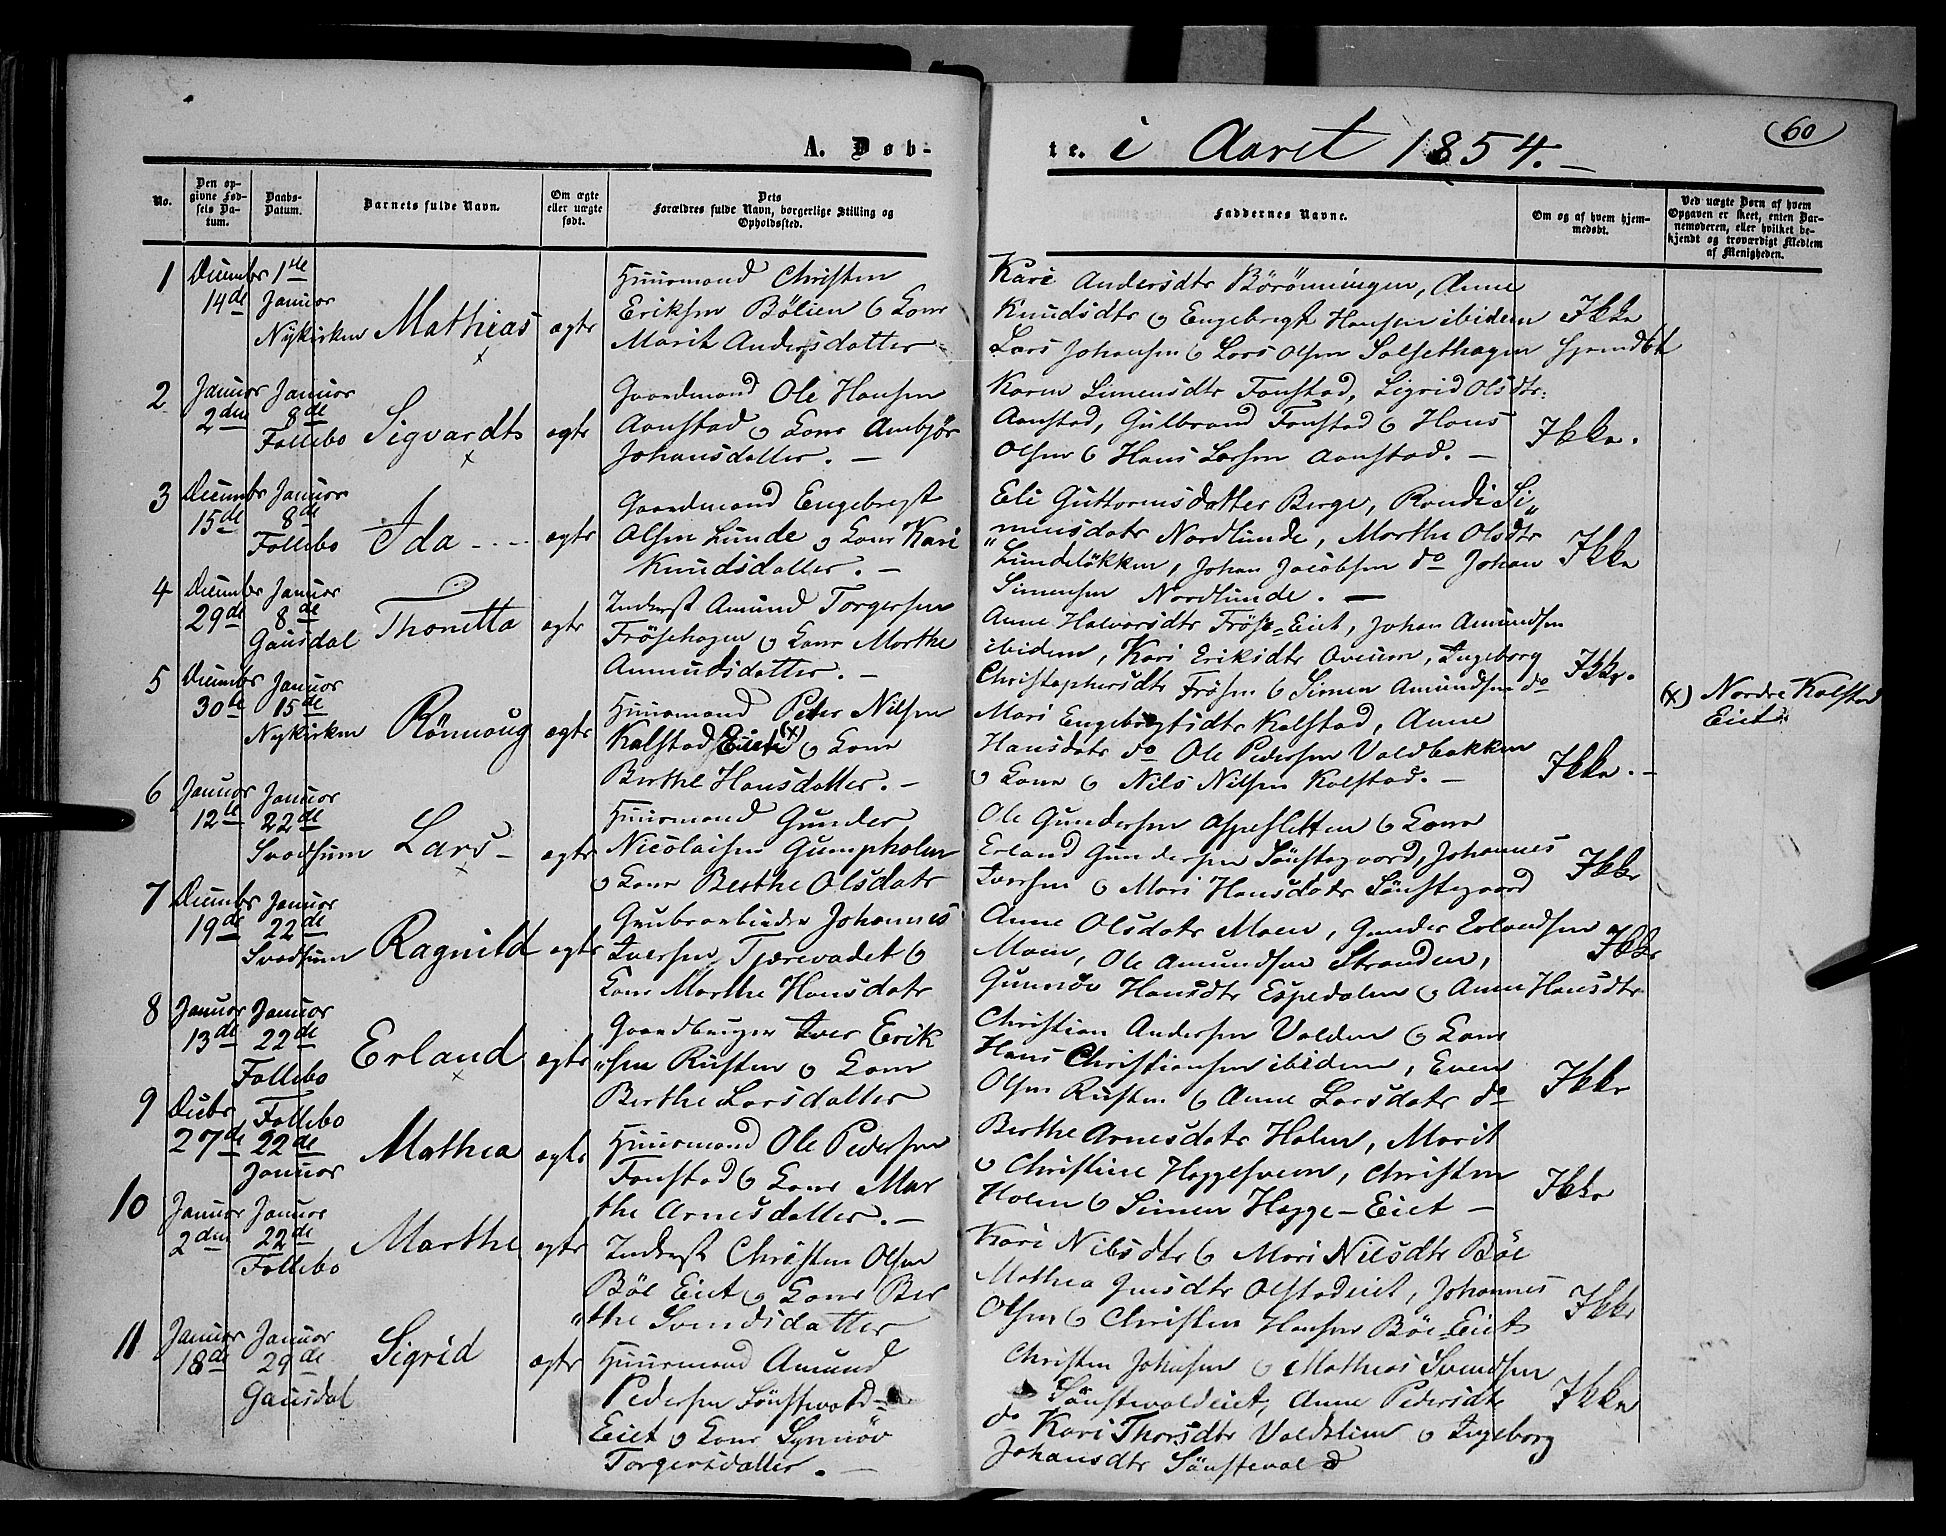 60
A. Døb-
te. i Aaret 1854.
No.
Den op-
givne Fød-
sels Da-
tum.
Daabs-
Datum.
Barnets fulde Navn.
Om ægte
eller uægte
født.
Dets
Forældres fulde Navn, borgerlige Stilling og
Opholdssted.
Faddernes Navne.
Om og af hvem hjem-
medøbt.
Ved uægte Børn af hvem
Opgaven er skeet, enten Bar-
nemoderen, eller hvilket be-
kjendt og troværdigt Medlem
af Menigheden.
1
Decembr
14de
1ste
Januar
Nykirken
Mathias
ægte
Huusmand Christen
Eriksen Bölien & Kone
Marit Andersdatter
Kari Andersdtr Börönningen, Anne
Knudsdtr & Engebregt Hansen ibidem
Lars Johansen & Lars Olsen Solsethagen
Ikke
Hjemdöbt
2
Januar
2den
Januar
8de
Follebo
Sigvardt
ægte
Gaardmand Ole Hansen
Aanstad & Kone Ambjör
Johansdatter. —
Karen Simensdtr Fonstad, Sigrid Olsdtr:
Aanstad, Gulbrand Fonstad & Hans
Olsen & Hans Larsen Aanstad. —
Ikke.
3
Decembr
15de
Januar
8de
Follebo
Ida
ægte
Gaardmand Engebregt
Olsen Lunde & Kone Kari
Knudsdatter. —
Eli Guttormsdatter Berge, Randi Si„
„mensdatr Nordlunde, Marthe Olsdtr
Lundelökken, Johan Jacobsen do Johan
Simensen Nordlunde. —
Ikke
4
Decembr
29de
Januar
8de
Gausdal
Thonetta
ægte
Inderst Amund Torgersen
Frösehagen & Kone Marthe
Amundsdatter. —
Anne Halvorsdtr Fröse=Eiet, Johan Amundsen
ibidem, Kari Eriksdtr Oveum, Ingeborg
Christophersdtr Frösen & Simen Amundsen do
Ikke.
5
Decembr
30te
Januar
15de
Nykirken
Rönnoug
ægte
Huusmand Peter Nilsen
Kalstad Eiet (x) & Kone
Berthe Hansdatter. —
Mari Engebregtsdtr Kalstad, Anne
Hansdatr do Ole Pedersen Valdbakken
& Kone & Nils Nilsen Kalstad. —
Ikke. —
(x) Nordre Kalstad
Eiet.
6
Januar
12te
Januar
22de
Svadsum
Lars
ægte
Huusmand Gunder
Nicolaisen Gumpholen
& Kone Berthe Olsdatr
Ole Gundersen Aspesletten & Kone
Erland Gundersen Sönstegaard, Johannes
Iversen & Mari Hansdatr Sönstegaard
Ikke
7
Decembr
19de
Januar
22de
Svadsum
Ragnild
ægte
Grubearbeider Johannes
Iversen Tjærevadet &
Kone Marthe Hansdatr
Anne Olsdatr Moen, Gunder Erlandsen
Moen, Ole Amundsen Stranden,
Gunnöv Hansdtr Espedalen & Anne Hansdtr
Ikke
8
Januar
13de
Januar
22de
Follebo
Erland
ægte
Gaardbruger Iver Erik
„sen Rusten & Kone
Berthe Larsdatter
Christian Andersen Valden & Kone
Hans Christiansen ibidem, Even
Olsen Rusten & Anne Larsdatr do
Ikke
9
Decbr
27de
Follebo
22de
Januar
Mathea
ægte
Huusmand Ole Pedersen
Fonstad & Kone Mar
the Arnesdatter. —
Berthe Arnesdatr Holen, Marit
& Christine Heggelsveen, Christen
Holen & Simen Hegge-Eiet —
Ikke
10
Januar
2den
Januar
22de
Follebo
Marthe
ægte
Inderst Christen Olsen
Böe Eiet & Kone Ber
„the Svendsdatter
Kari Nilsdtr & Mari Nilsdtr Böe
Mathea Jensdtr Olstadeiet, Johannes
Olsen & Christen Hansen Böe=Eiet
Ikke
11
Januar
18de
Januar
29de
Gausdal
Sigrid
ægte
Huusmand Amund
Pedersen Sönstevold=
Eiet & Kone Synnöv
Torgersdatter. —
Christen Johnsen & Mathias Svendsen
Sönstevoldeiet, Anne Pedersdtr
do Kari Thorsdtr Voldelien & Ingeborg
Johansdtr Sönstevold
Ikke